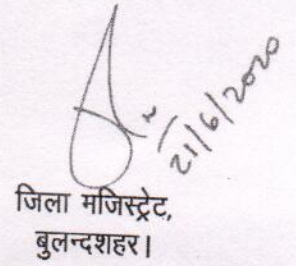 21/6/2020
जिला मजिस्ट्रेट,
बुलन्दशहर।